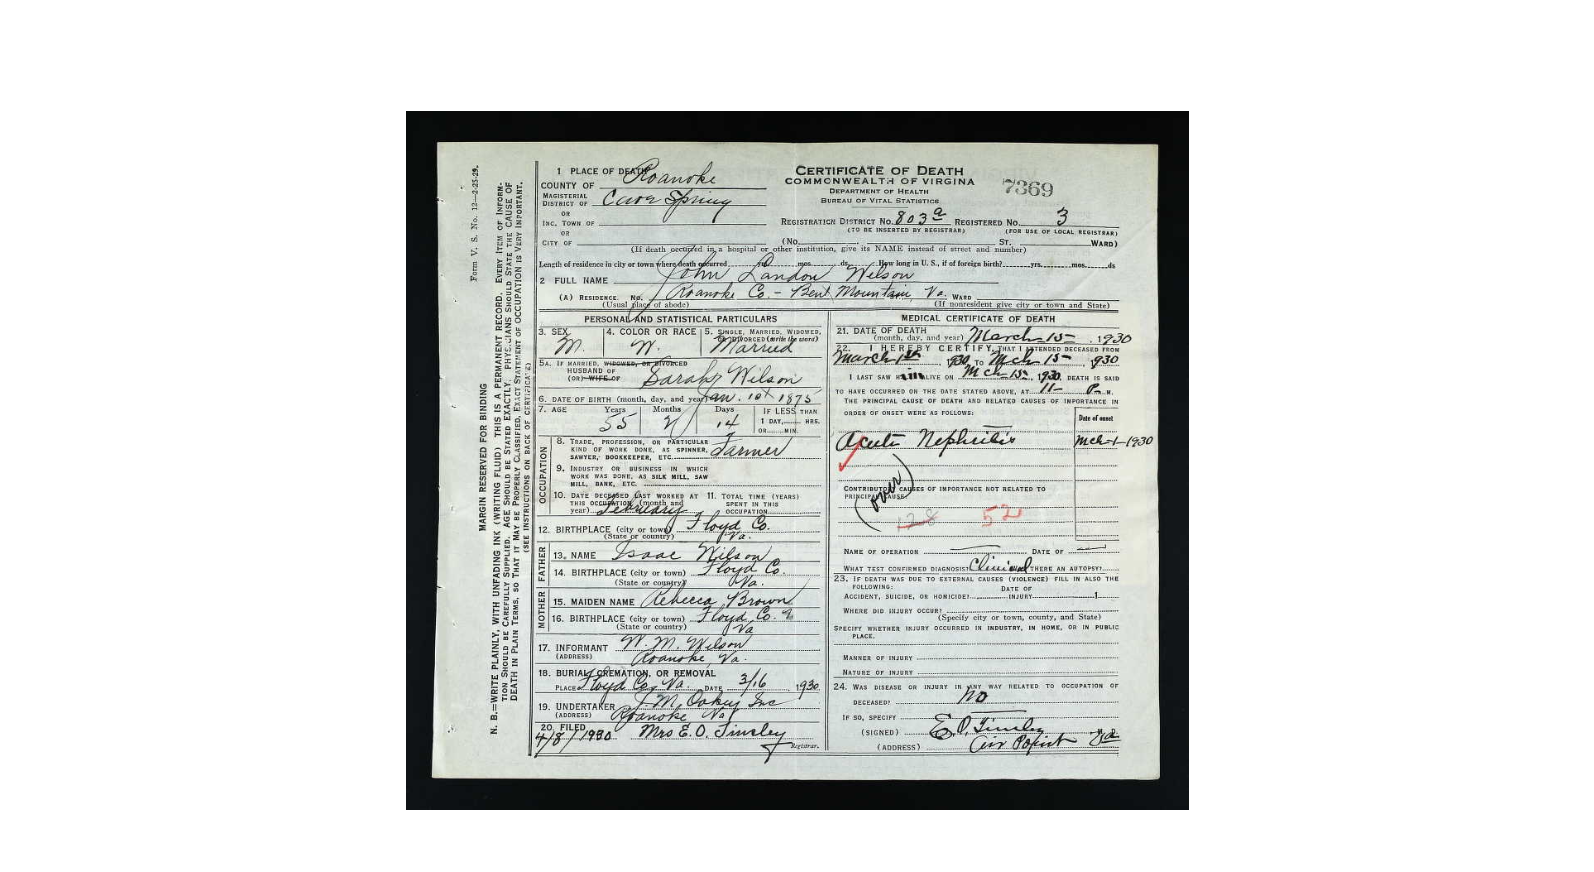 Form V. S. No. 12—2-25-29.
MARGIN RESERVED FOR BINDING
N. B.—WRITE PLAINLY, WITH UNFADING INK (WRITING FLUID) THIS IS A PERMANENT RECORD. EVERY ITEM OF INFORM-
TION SHOULD BE CAREFULLY SUPPLIED. AGE SHOULD BE STATED EXACTLY. PHYSICIANS SHOULD STATE THE CAUSE OF
DEATH IN PLAIN TERMS, SO THAT IT MAY BE PROPERLY CLASSIFIED. EXACT STATEMENT OF OCCUPATION IS VERY IMPORTANT.
(SEE INSTRUCTIONS ON BACK OF CERTIFICATE)
1 PLACE OF DEATH
COUNTY OF Roanoke
MAGISTERIAL DISTRICT OF Cave Spring
OR
INC. TOWN OF
OR
CITY OF
CERTIFICATE OF DEATH
COMMONWEALTH OF VIRGINIA
DEPARTMENT OF HEALTH
BUREAU OF VITAL STATISTICS
7369
REGISTRATION DISTRICT No. 803a REGISTERED No. 3
(TO BE INSERTED BY REGISTRAR) (FOR USE OF LOCAL REGISTRAR)
(No. ST. WARD)
(If death occurred in a hospital or other institution, give its NAME instead of street and number)
Length of residence in city or town where death occurred yrs. mos. ds. How long in U. S., if of foreign birth? yrs. mos. ds
2 FULL NAME John Landon Wilson
(A) RESIDENCE. No. Roanoke Co. - Bent Mountain, Va. WARD
(Usual place of abode) (If nonresident give city or town and State)
PERSONAL AND STATISTICAL PARTICULARS
3. SEX M.
4. COLOR OR RACE W.
5. SINGLE, MARRIED, WIDOWED, OR DIVORCED (write the word) Married
5A. IF MARRIED, WIDOWED, OR DIVORCED
HUSBAND OF
(OR) WIFE OF Sarah Wilson
6. DATE OF BIRTH (month, day, and year) Jan. 1st 1875
7. AGE Years 55 Months 2 Days 14 IF LESS THAN
1 DAY, HRS.
OR MIN.
OCCUPATION
8. TRADE, PROFESSION, OR PARTICULAR
KIND OF WORK DONE, AS SPINNER,
SAWYER, BOOKKEEPER, ETC. Farmer
9. INDUSTRY OR BUSINESS IN WHICH
WORK WAS DONE, AS SILK MILL, SAW
MILL, BANK, ETC.
10. DATE DECEASED LAST WORKED AT
THIS OCCUPATION (month and
year) February
11. TOTAL TIME (YEARS)
SPENT IN THIS
OCCUPATION
12. BIRTHPLACE (city or town) Floyd Co.
(State or country) Va.
FATHER
13. NAME Isaac Wilson
14. BIRTHPLACE (city or town) Floyd Co.
(State or country) Va.
MOTHER
15. MAIDEN NAME Rebecca Brown
16. BIRTHPLACE (city or town) Floyd Co.
(State or country) Va
17. INFORMANT W. M. Wilson
(ADDRESS) Roanoke, Va.
18. BURIAL, CREMATION, OR REMOVAL
PLACE Floyd Co. Va. DATE 3/16 1930
19. UNDERTAKER J. M. Oakey Inc
(ADDRESS) Roanoke, Va
20. FILED 4/8/1930 Mrs E. O. Tinsley
Registrar.
MEDICAL CERTIFICATE OF DEATH
21. DATE OF DEATH
(month, day, and year) March 15 1930
22. I HEREBY CERTIFY, THAT I ATTENDED DECEASED FROM
March 1st 1930, TO Mch 15 1930
I LAST SAW him ALIVE ON Mch 15 1930. DEATH IS SAID
TO HAVE OCCURRED ON THE DATE STATED ABOVE, AT 11 P. M.
THE PRINCIPAL CAUSE OF DEATH AND RELATED CAUSES OF IMPORTANCE IN
ORDER OF ONSET WERE AS FOLLOWS:
Date of onset
Acute Nephritis Mch-1-1930
(over)
CONTRIBUTORY CAUSES OF IMPORTANCE NOT RELATED TO
PRINCIPAL CAUSE:
128 52
NAME OF OPERATION DATE OF
WHAT TEST CONFIRMED DIAGNOSIS? Clinical WAS THERE AN AUTOPSY?
23. IF DEATH WAS DUE TO EXTERNAL CAUSES (VIOLENCE) FILL IN ALSO THE
FOLLOWING:
ACCIDENT, SUICIDE, OR HOMICIDE? DATE OF INJURY 1
WHERE DID INJURY OCCUR?
(Specify city or town, county, and State)
SPECIFY WHETHER INJURY OCCURRED IN INDUSTRY, IN HOME, OR IN PUBLIC
PLACE.
MANNER OF INJURY
NATURE OF INJURY
24. WAS DISEASE OR INJURY IN ANY WAY RELATED TO OCCUPATION OF
DECEASED? No
IF SO, SPECIFY
(SIGNED) E. O. Tinsley
(ADDRESS) Va